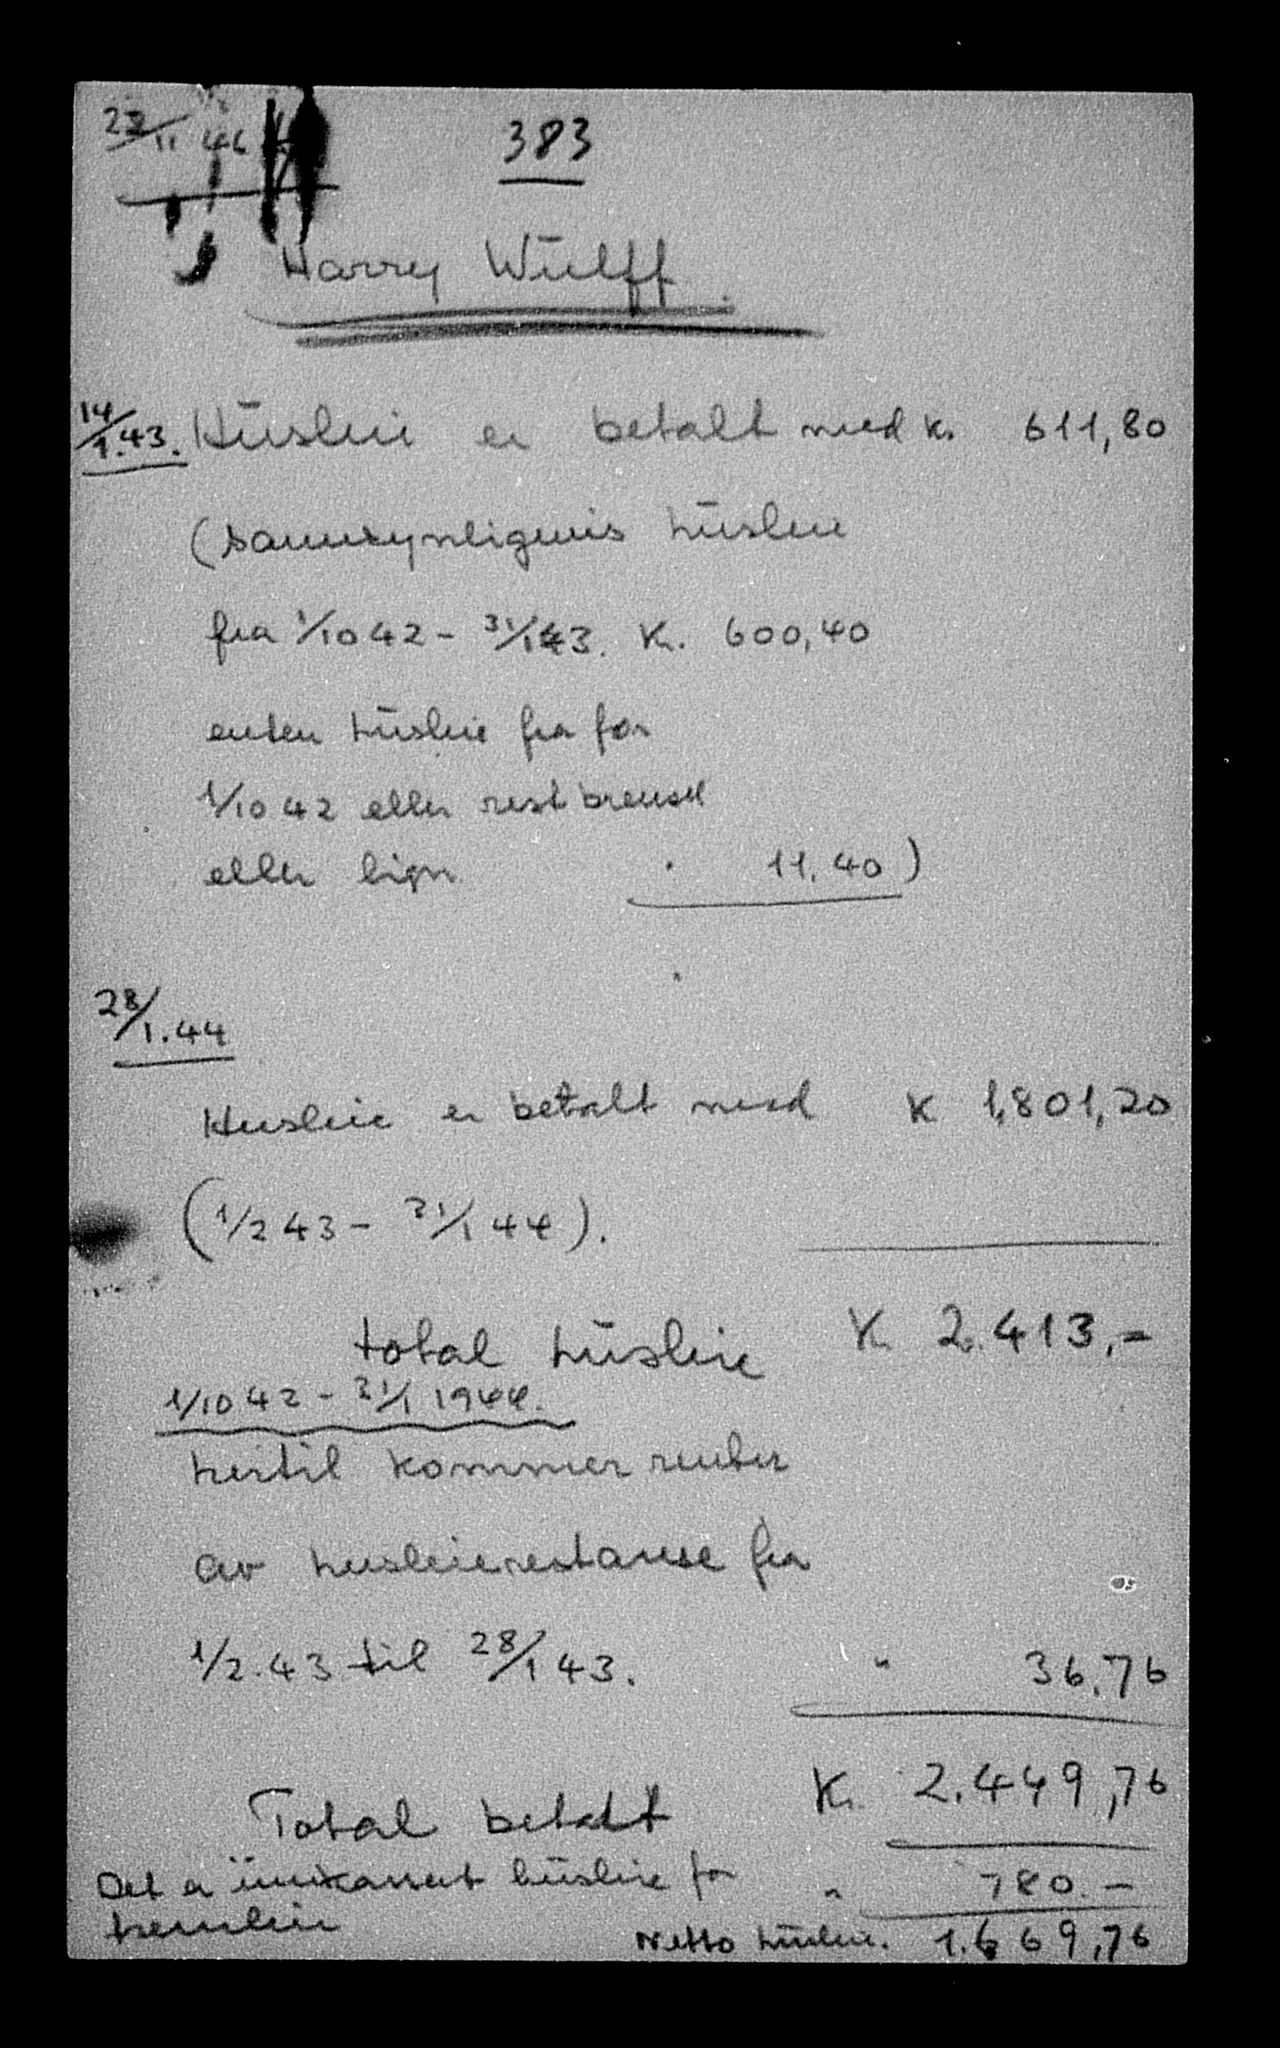 23/11 46
383
Harry Wülff.
14/1.43. Hüsleie er betalt med k. 611,80
(sannsynligvis hüsleie
fra 1/10 42 - 31/1 43. K. 600,40
enten hüsleie fra før
1/10 42 eller rest brensel
eller lign " 11.40)
28/1.44
Husleie er betalt med K 1,801,20
(1/2 43 - 31/1 44).
total hüsleie K 2.413.-
1/10 42 - 31/1 1944.
hertil kommer renter
av husleierestanse fra
1/2.43 til 28/1 43. " 36.76
Total betalt K. 2.449,76
Det er innkassert hüsleie for " 780.-
Netto hüsleie. 1.669,76